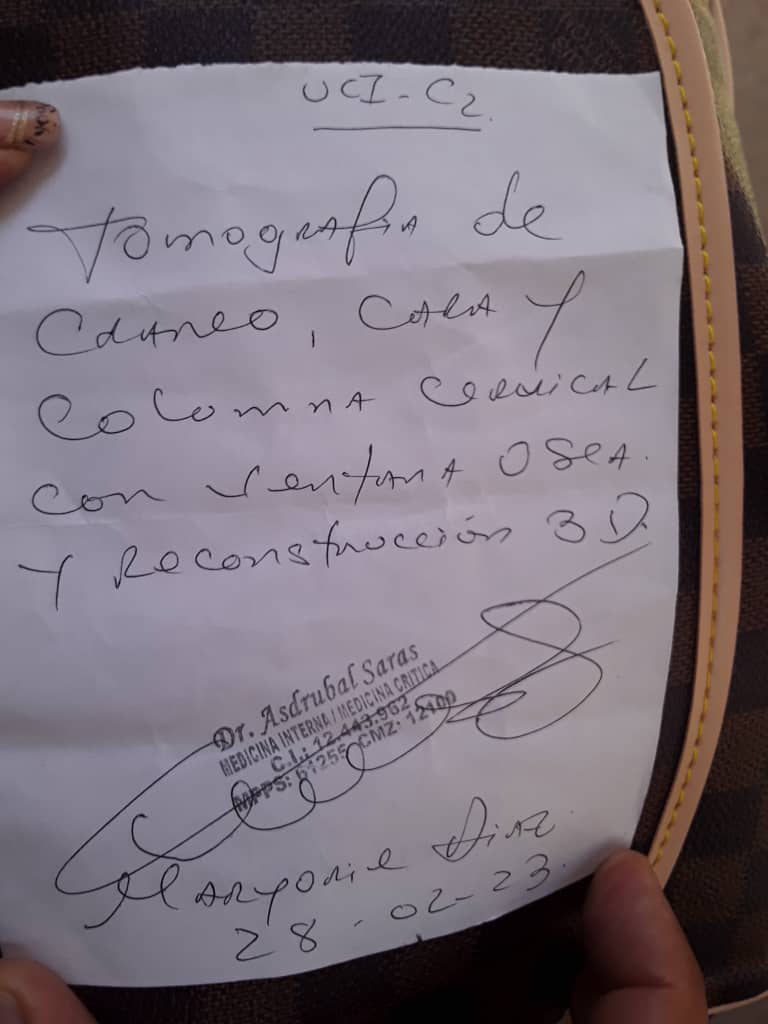 UCI - C2.
Tomografia de
Craneo, Cara y
Columna Cervical
con Ventana Osea.
y Reconstrucción 3D.
Dr. Asdrubal Saras
MEDICINA INTERNA / MEDICINA CRITICA
C.I.: 12.443.962
MPPS: 61255 CMZ: 12100
Maryorie Diaz
28-02-23.